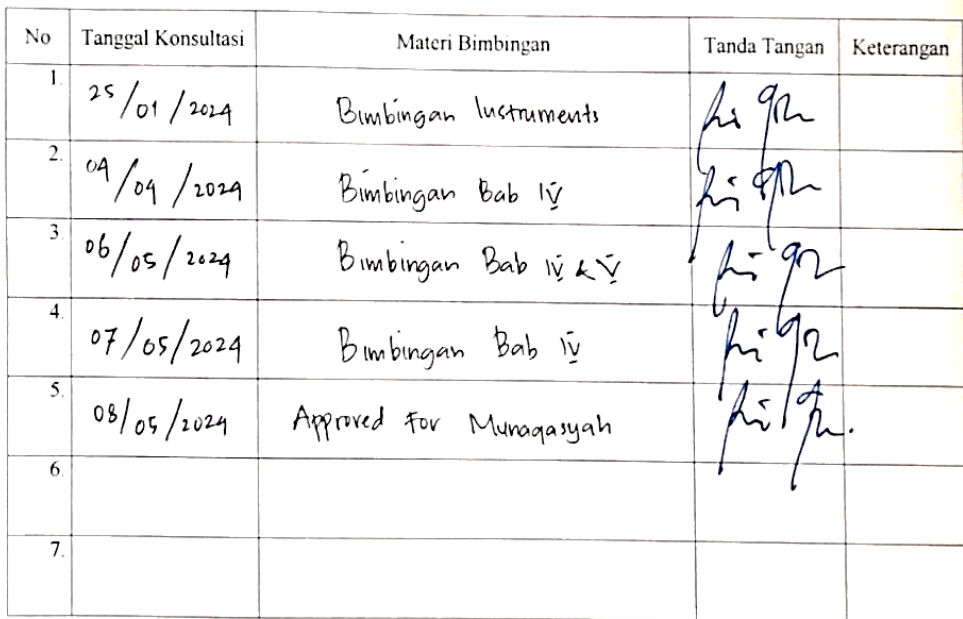 No Tanggal Konsultasi Materi Bimbingan Tanda Tangan Keterangan
1. 25/01/2024 Bimbingan Instruments
2. 04/04/2024 Bimbingan Bab IV
3. 06/05/2024 Bimbingan Bab IV & V
4. 07/05/2024 Bimbingan Bab IV
5. 08/05/2024 Approved For Munaqasyah
6.
7.